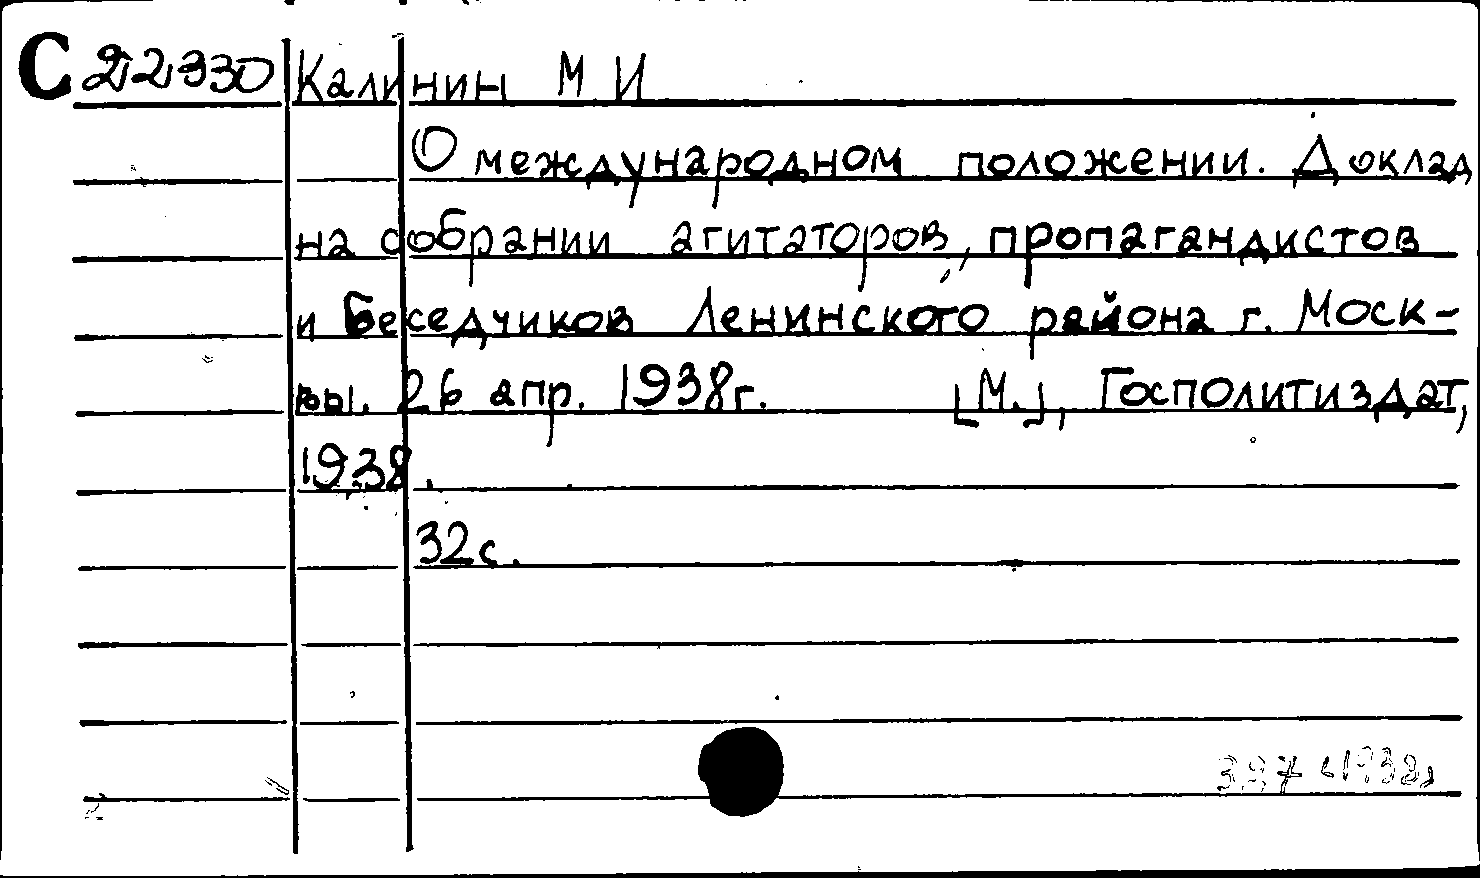 С 22330 Калинин М И
О международном положении. Доклад
на собрании агитаторов, пропагандистов
и беседчиков Ленинского района г. Моск-
вы. 26 апр. 1938г. [М.], Госполитиздат,
1938.
32с.